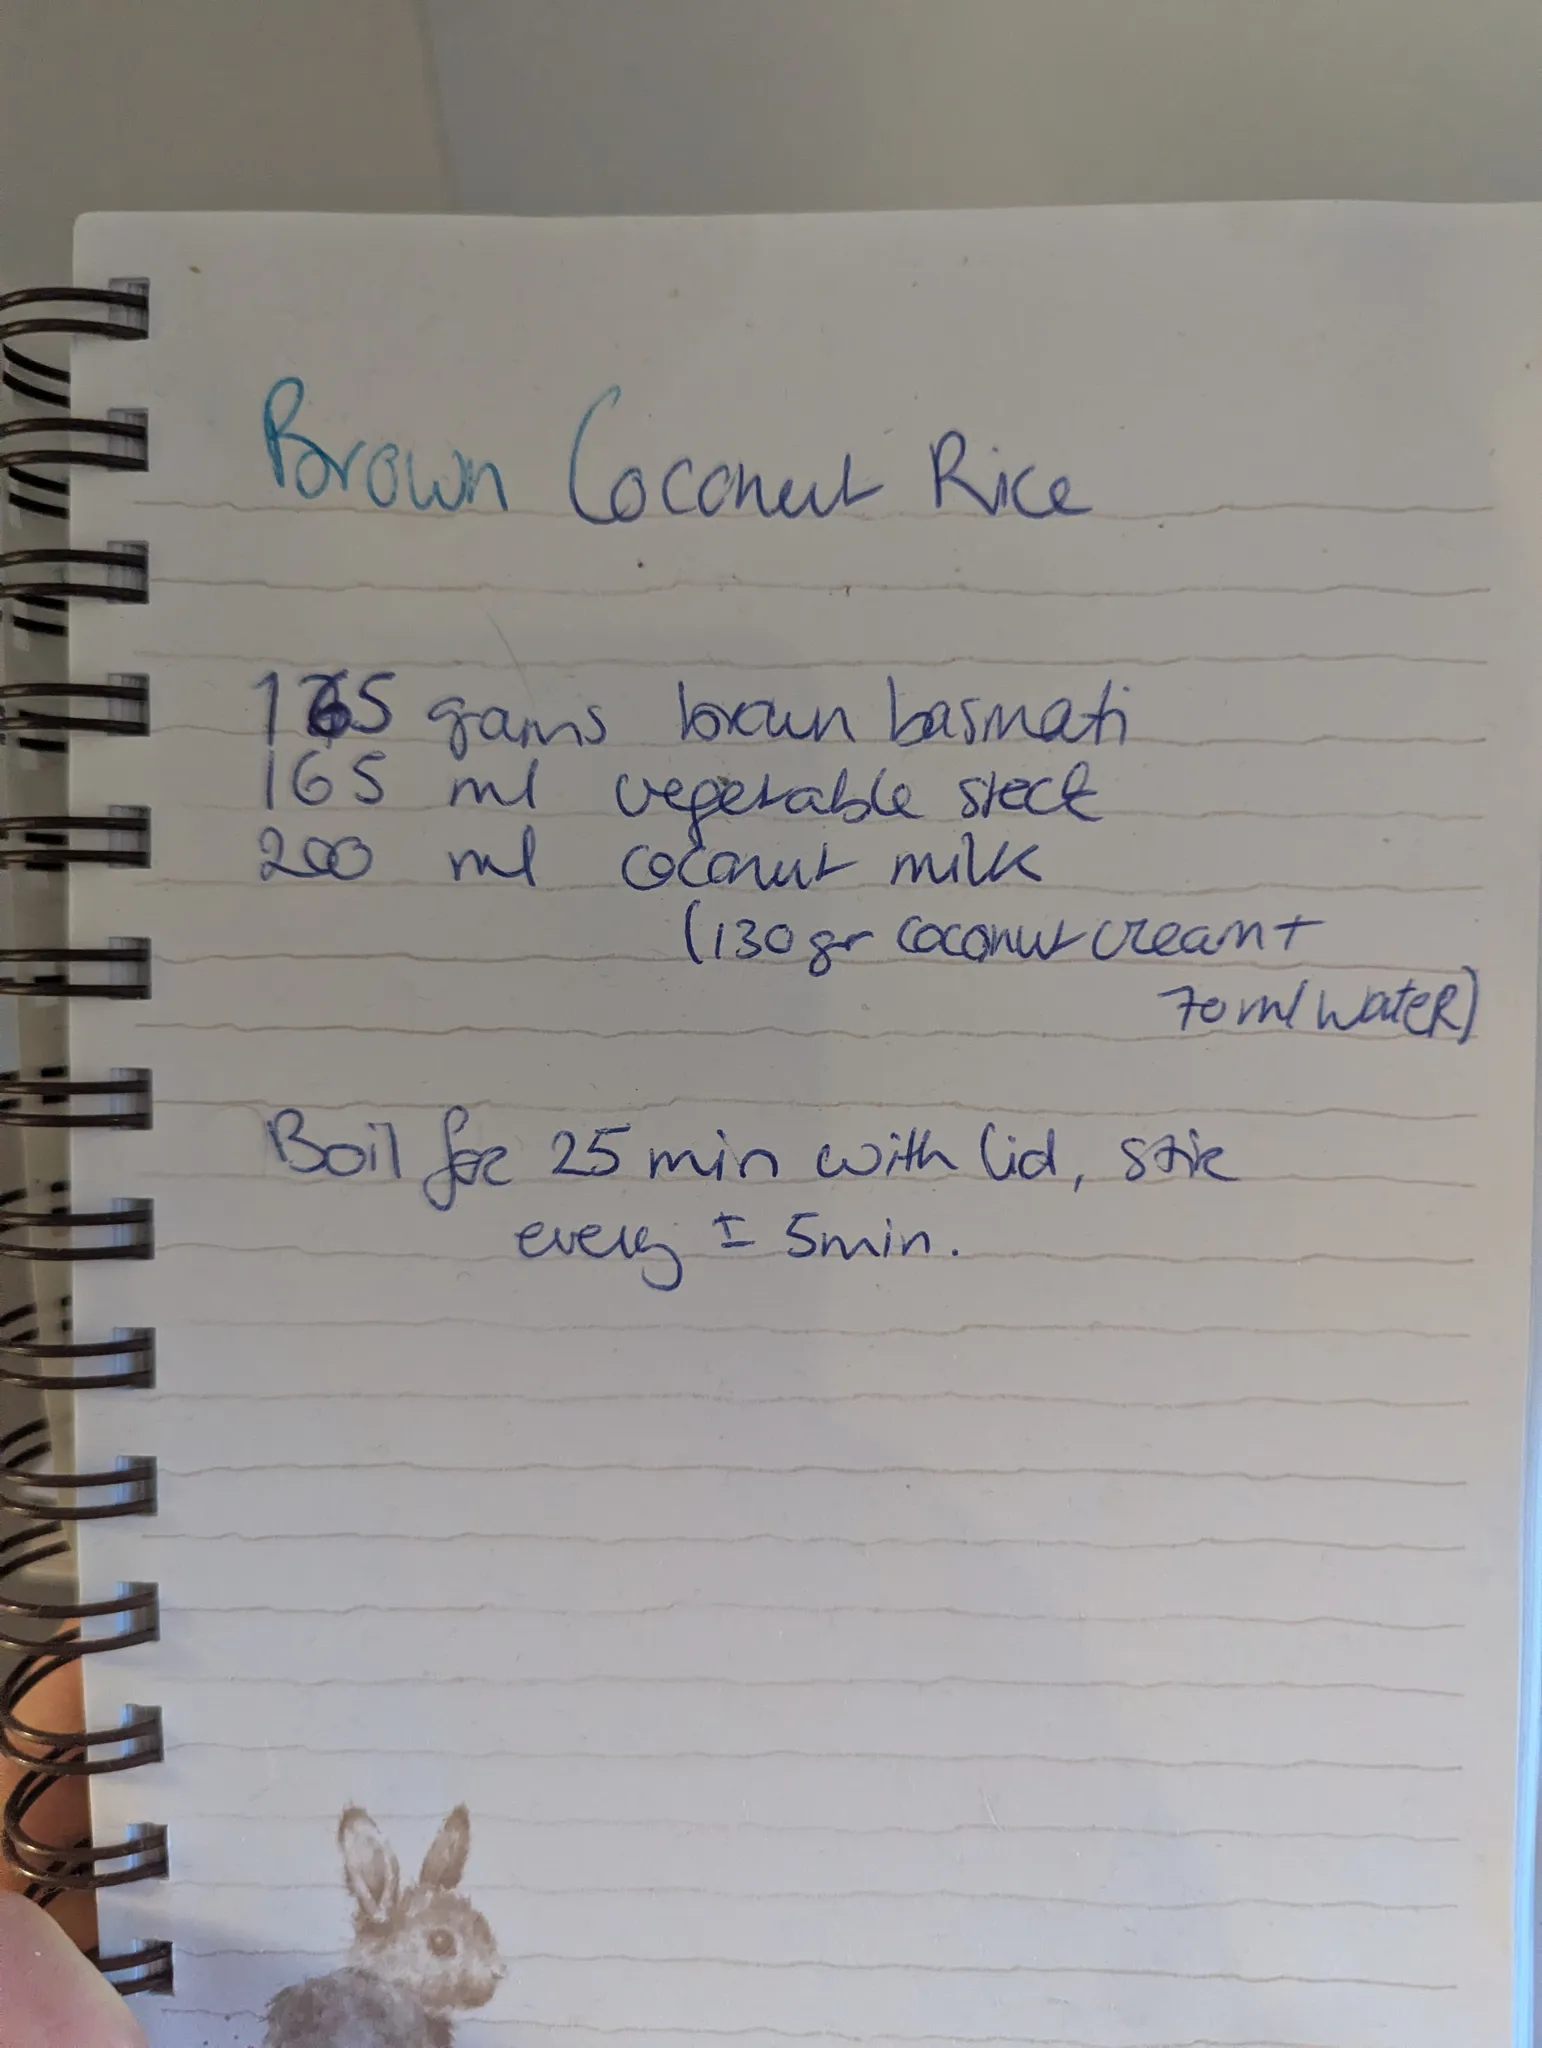 Brown Coconut Rice
165 grams brown basmati
165 ml vegetable stock
200 ml coconut milk
(130 gr coconut cream +
70 ml water)
Boil for 25 min with lid, stir
every ± 5 min.